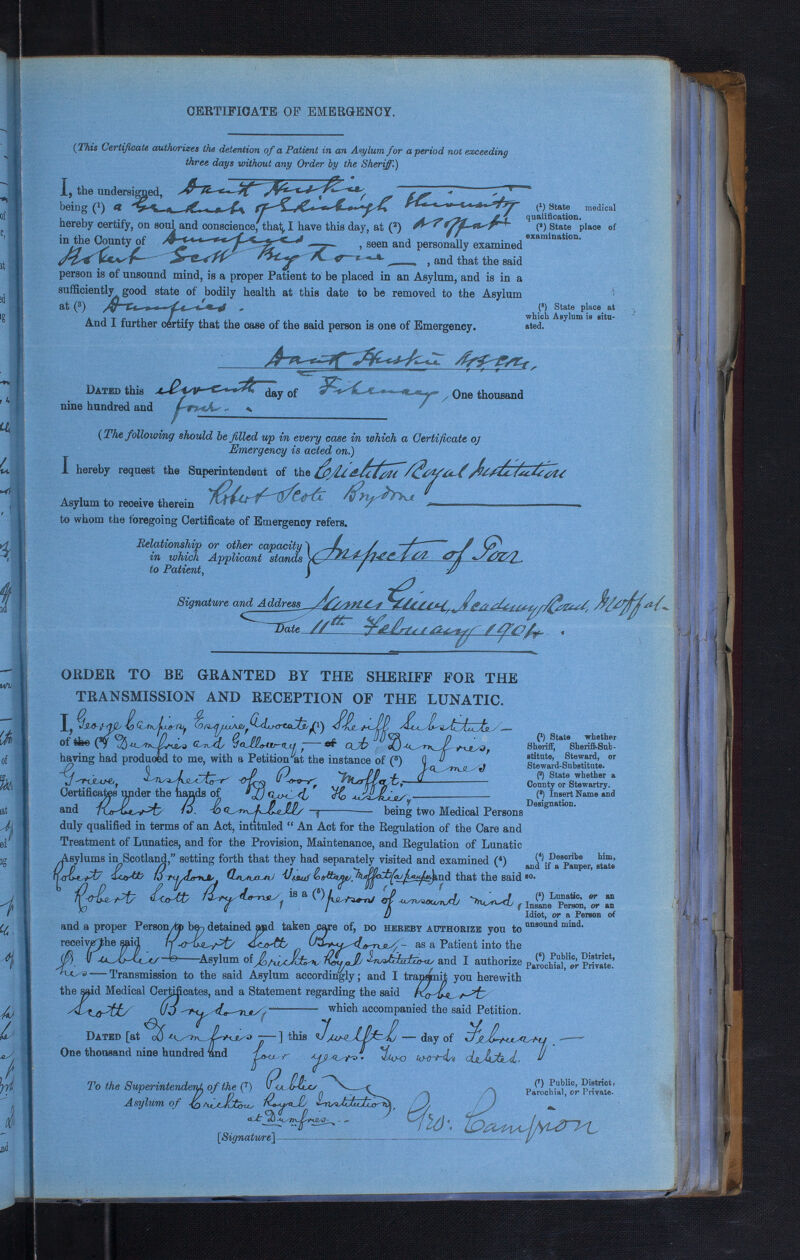 CERTIFICATE OF EMERGENCY.
(This Certificate authorizes the detention of a Patient in an Asylum for a period not exceeding
three days without any Order by the Sheriff.)
I, the undersigned, David Huskie,
being (¹) a Graduate of Edinburgh University
(¹) State medical
qualification.
hereby certify, on soul and conscience, that, I have this day, at (²) Moffat
(²) State place of
examination.
in the County of Dumfries, seen and personally examined
Robert Scott Brydone, and that the said
person is of unsound mind, is a proper Patient to be placed in an Asylum, and is in a
sufficiently good state of bodily health at this date to be removed to the Asylum
at (³) Dumfries.
(³) State place at
which Asylum is situ-
ated.
And I further certify that the case of the said person is one of Emergency.
David Huskie
DATED this eleventh day of February, One thousand
nine hundred and four.
(The following should be filled up in every case in which a Certificate of
Emergency is acted on.)
I hereby request the Superintendent of the Crichton Royal Institution
Asylum to receive therein Robert Scott Brydone
to whom the foregoing Certificate of Emergency refers.
Relationship or other capacity
in which Applicant stands
to Patient,
Inspector of Poor
Signature and Address James Grieve, Academy Road, Moffat
Date 11th February 1904.
ORDER TO BE GRANTED BY THE SHERIFF FOR THE
TRANSMISSION AND RECEPTION OF THE LUNATIC.
I, George Campion, Esquire, Advocate, (¹) Sheriff Substitute
of the (²) Dumfries and Galloway, of at Dumfries,
(¹) State whether
Sheriff, Sheriff-Sub-
stitute, Steward, or
Steward-Substitute.
(²) State whether a
County or Stewartry.
(³) Insert Name and
Designation.
having had produced to me, with a Petition at the instance of (³) James
Grieve, Inspector of Poor, Moffat,
Certificates under the hands of David Huskie,
and Robert B. Campbell, being two Medical Persons
duly qualified in terms of an Act, intituled “An Act for the Regulation of the Care and
Treatment of Lunatics, and for the Provision, Maintenance, and Regulation of Lunatic
Asylums in Scotland,” setting forth that they had separately visited and examined (⁴)
(⁴) Describe him,
and if a Pauper, state
so.
Robert Scott Brydone, Annan View Cottage, Moffat, (a pauper) and that the said
Robert Scott Brydone, is a (⁵) person of unsound mind,
(⁵) Lunatic, or an
Insane Person, or an
Idiot, or a Person of
unsound mind.
and a proper Person to be detained and taken care of, DO HEREBY AUTHORIZE you to
receive the said Robert Scott Brydone, - as a Patient into the
Public Asylum of Crichton Royal Institution and I authorize
(⁶) Public, District,
Parochial, or Private.
his Transmission to the said Asylum accordingly; and I transmit you herewith
the said Medical Certificates, and a Statement regarding the said Robert
Scott Brydone, which accompanied the said Petition.
DATED [at Dumfries ] this Twelfth day of February.
One thousand nine hundred and four years. Two words deleted.
To the Superintendent of the (⁷) Public
(⁷) Public, District,
Parochial, or Private.
Asylum of Crichton Royal Institution,
at Dumfries.
[Signature] Geo. Campion